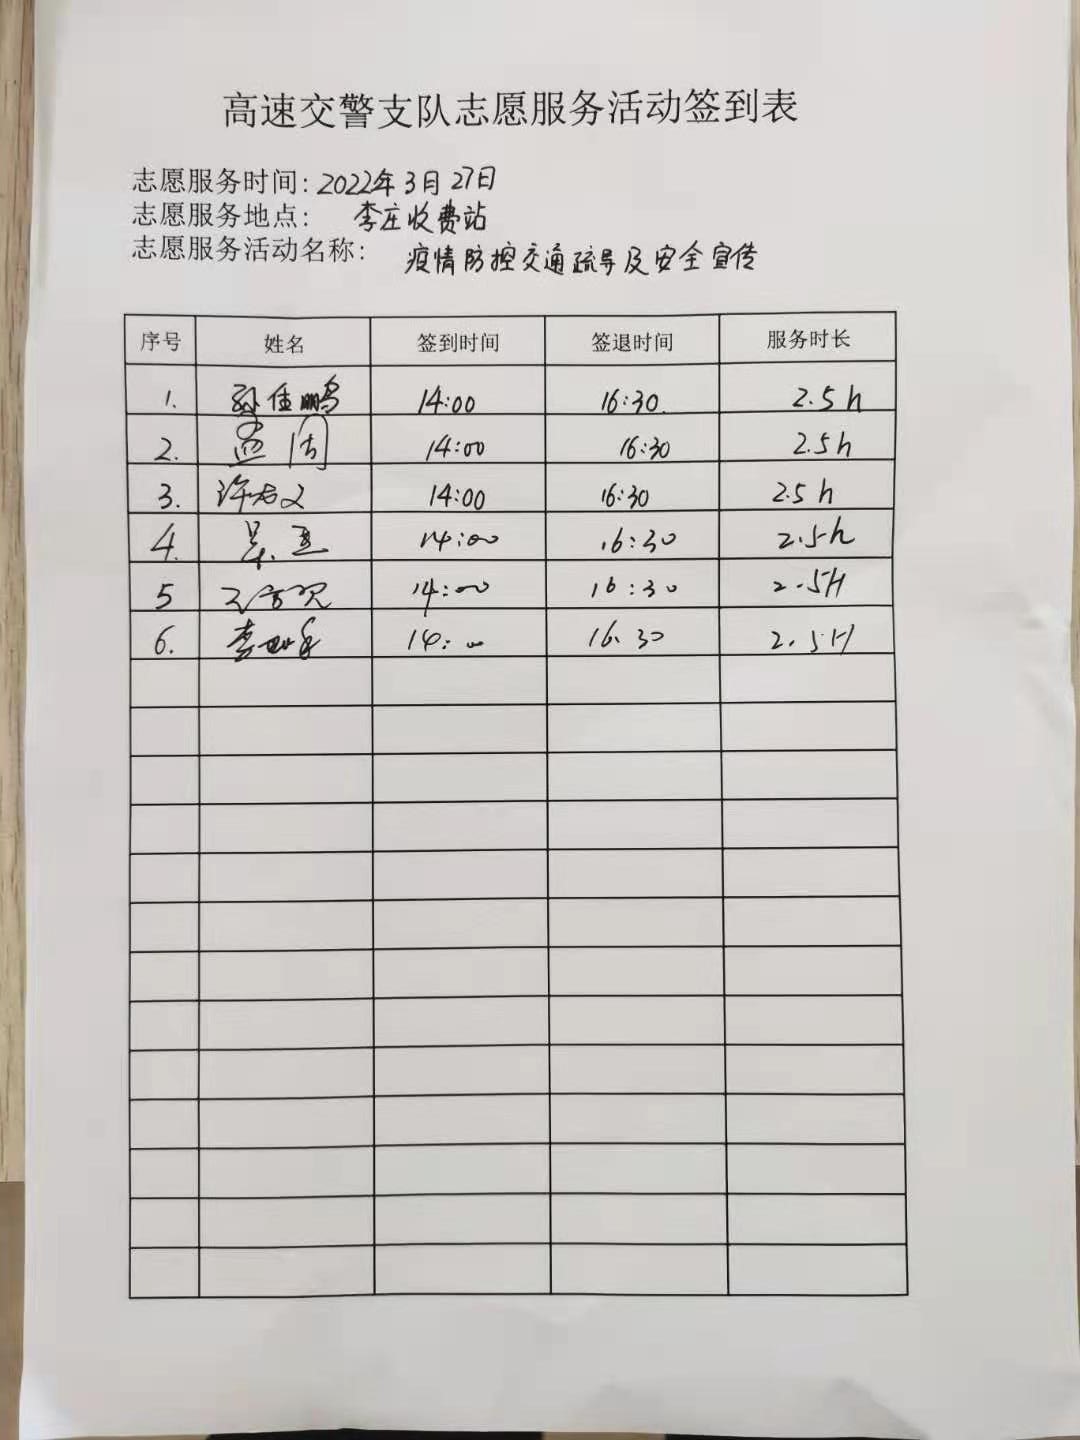 高速交警支队志愿服务活动签到表
志愿服务时间：2022年3月27日
志愿服务地点： 李庄收费站
志愿服务活动名称： 疫情防控交通疏导及安全宣传
序号 姓名 签到时间 签退时间 服务时长
1. 孙佳鹏 14:00 16:30 2.5h
2. 孟 14:00 16:30 2.5h
3. 许 文 14:00 16:30 2.5h
4. 14:00 16:30 2.5h
5 14:00 16:30 2.5H
6. 李 14:00 16.30 2.5H